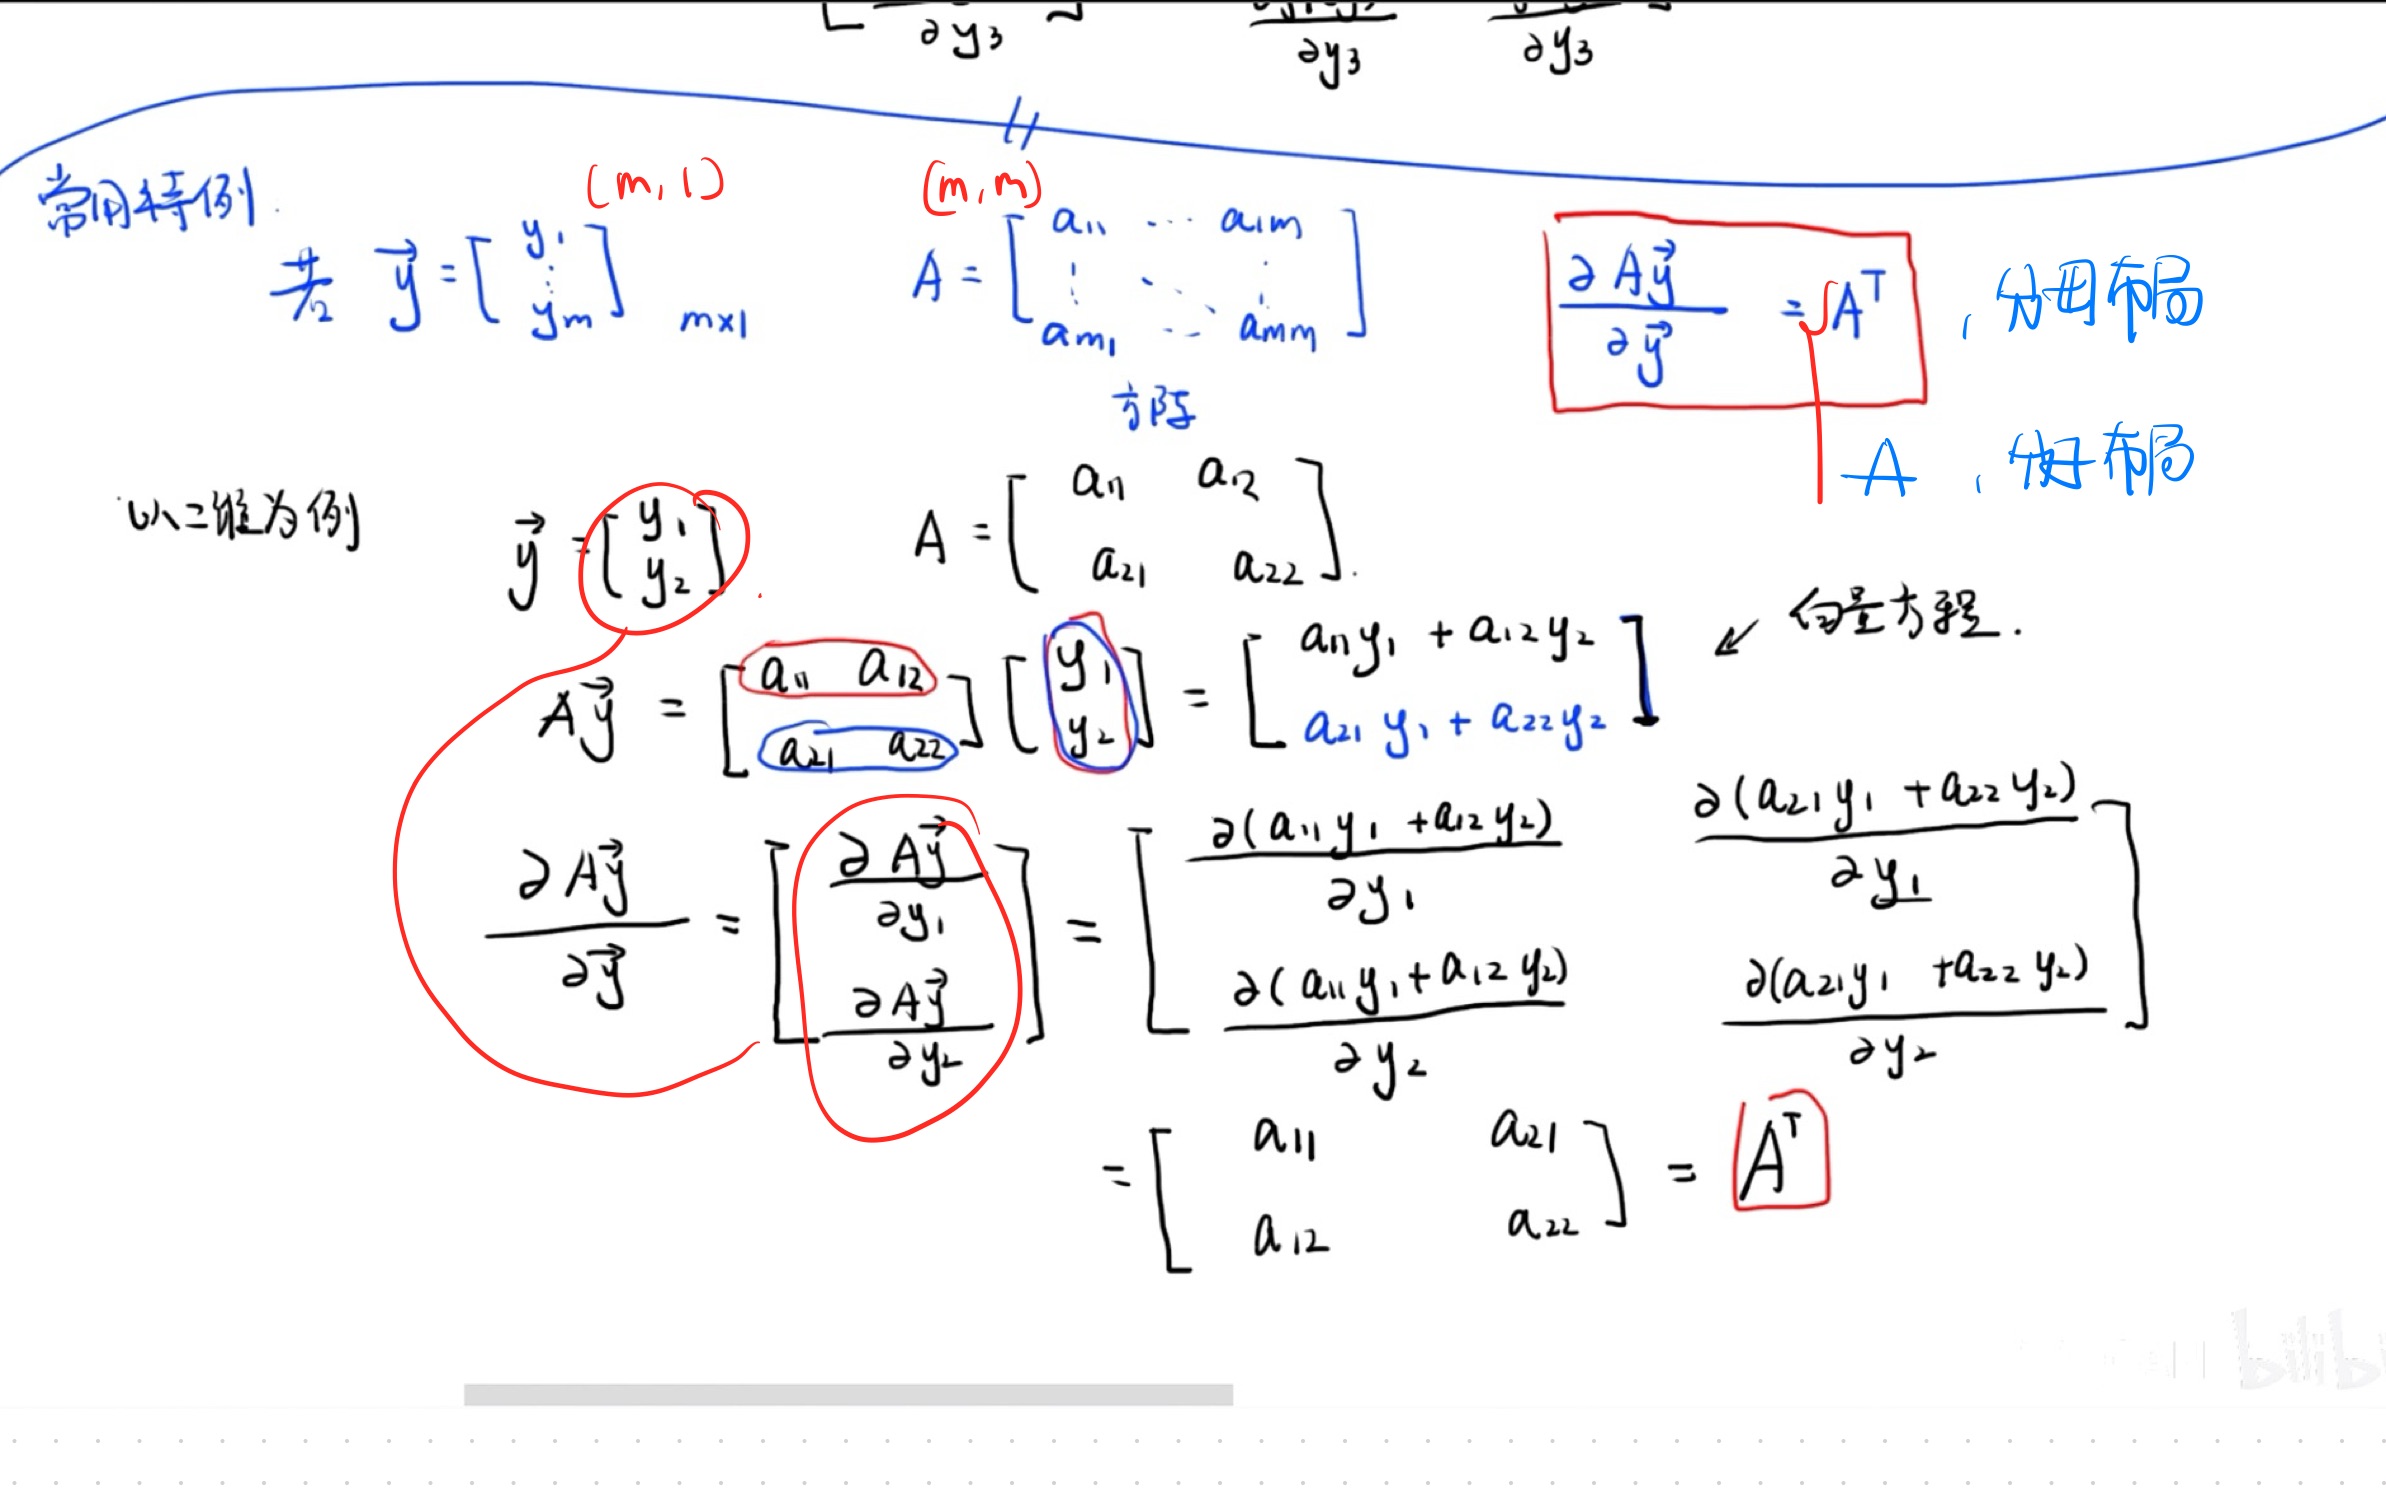 ∂y₃ ∂y₃ ∂y₃
常用特例. (m,1) (m,m)
若 y⃗ = [y₁ ⋮ yₘ] m×1 A = [a₁₁ ⋯ a₁ₘ ⋮ ⋱ ⋮ aₘ₁ ⋯ aₘₘ] ∂Ay⃗/∂y⃗ = Aᵀ , 分母布局
方阵
A , 布局
以二维为例 y⃗ = [y₁ y₂]. A = [a₁₁ a₁₂ a₂₁ a₂₂].
Ay⃗ = [a₁₁ a₁₂ a₂₁ a₂₂][y₁ y₂] = [a₁₁y₁ + a₁₂y₂ a₂₁y₁ + a₂₂y₂] ↙ 向量方程.
∂Ay⃗/∂y⃗ = [∂Ay⃗/∂y₁ ∂Ay⃗/∂y₂] = [∂(a₁₁y₁ + a₁₂y₂)/∂y₁ ∂(a₂₁y₁ + a₂₂y₂)/∂y₁ ∂(a₁₁y₁ + a₁₂y₂)/∂y₂ ∂(a₂₁y₁ + a₂₂y₂)/∂y₂]
= [a₁₁ a₂₁ a₁₂ a₂₂] = Aᵀ